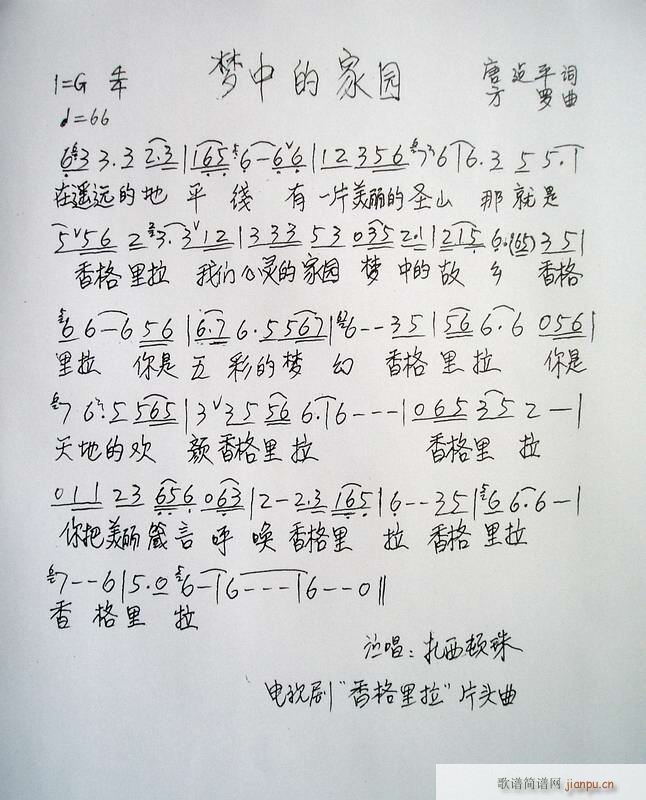 梦中的家园
1=G 4/4
唐 迈 平 词
♩=66
方 罗 曲
6 3 3.3 2.3|1 6 5 6-6 6|1 2 3 5 6 7 6|6.3 5 5.1
在遥远的地 平 线 有 一片美丽的圣山 那就是
5 5 6 2 3. 3 1 2|3 3 3 5 3 0 3 5 2.1|2 1 5 6.(6 5) 3 5|
香格里拉 我们心灵的家园 梦 中的故 乡 香格
6 6-6 5 6|6.7 6.5 5 6 7|6--3 5|5 6 6.6 0 5 6|
里拉 你是 五 彩的梦 幻 香格 里 拉 你是
7 6.5 5 6 5|3 3 5 5 6 6.|6---|0 6 5 3 5 2-|
天地的欢 颜香格里 拉 香格里 拉
0 1 1 2 3 6 5 6 0 6 3|2-2.3 1 6 5|6--3 5|6 6.6-|
你把美丽箴言呼 唤 香格里 拉 香格里拉
7--6|5.0 6-|6---|6--0‖
香 格里 拉
演唱：扎西顿珠
电视剧"香格里拉"片头曲
歌谱简谱网 jianpu.cn